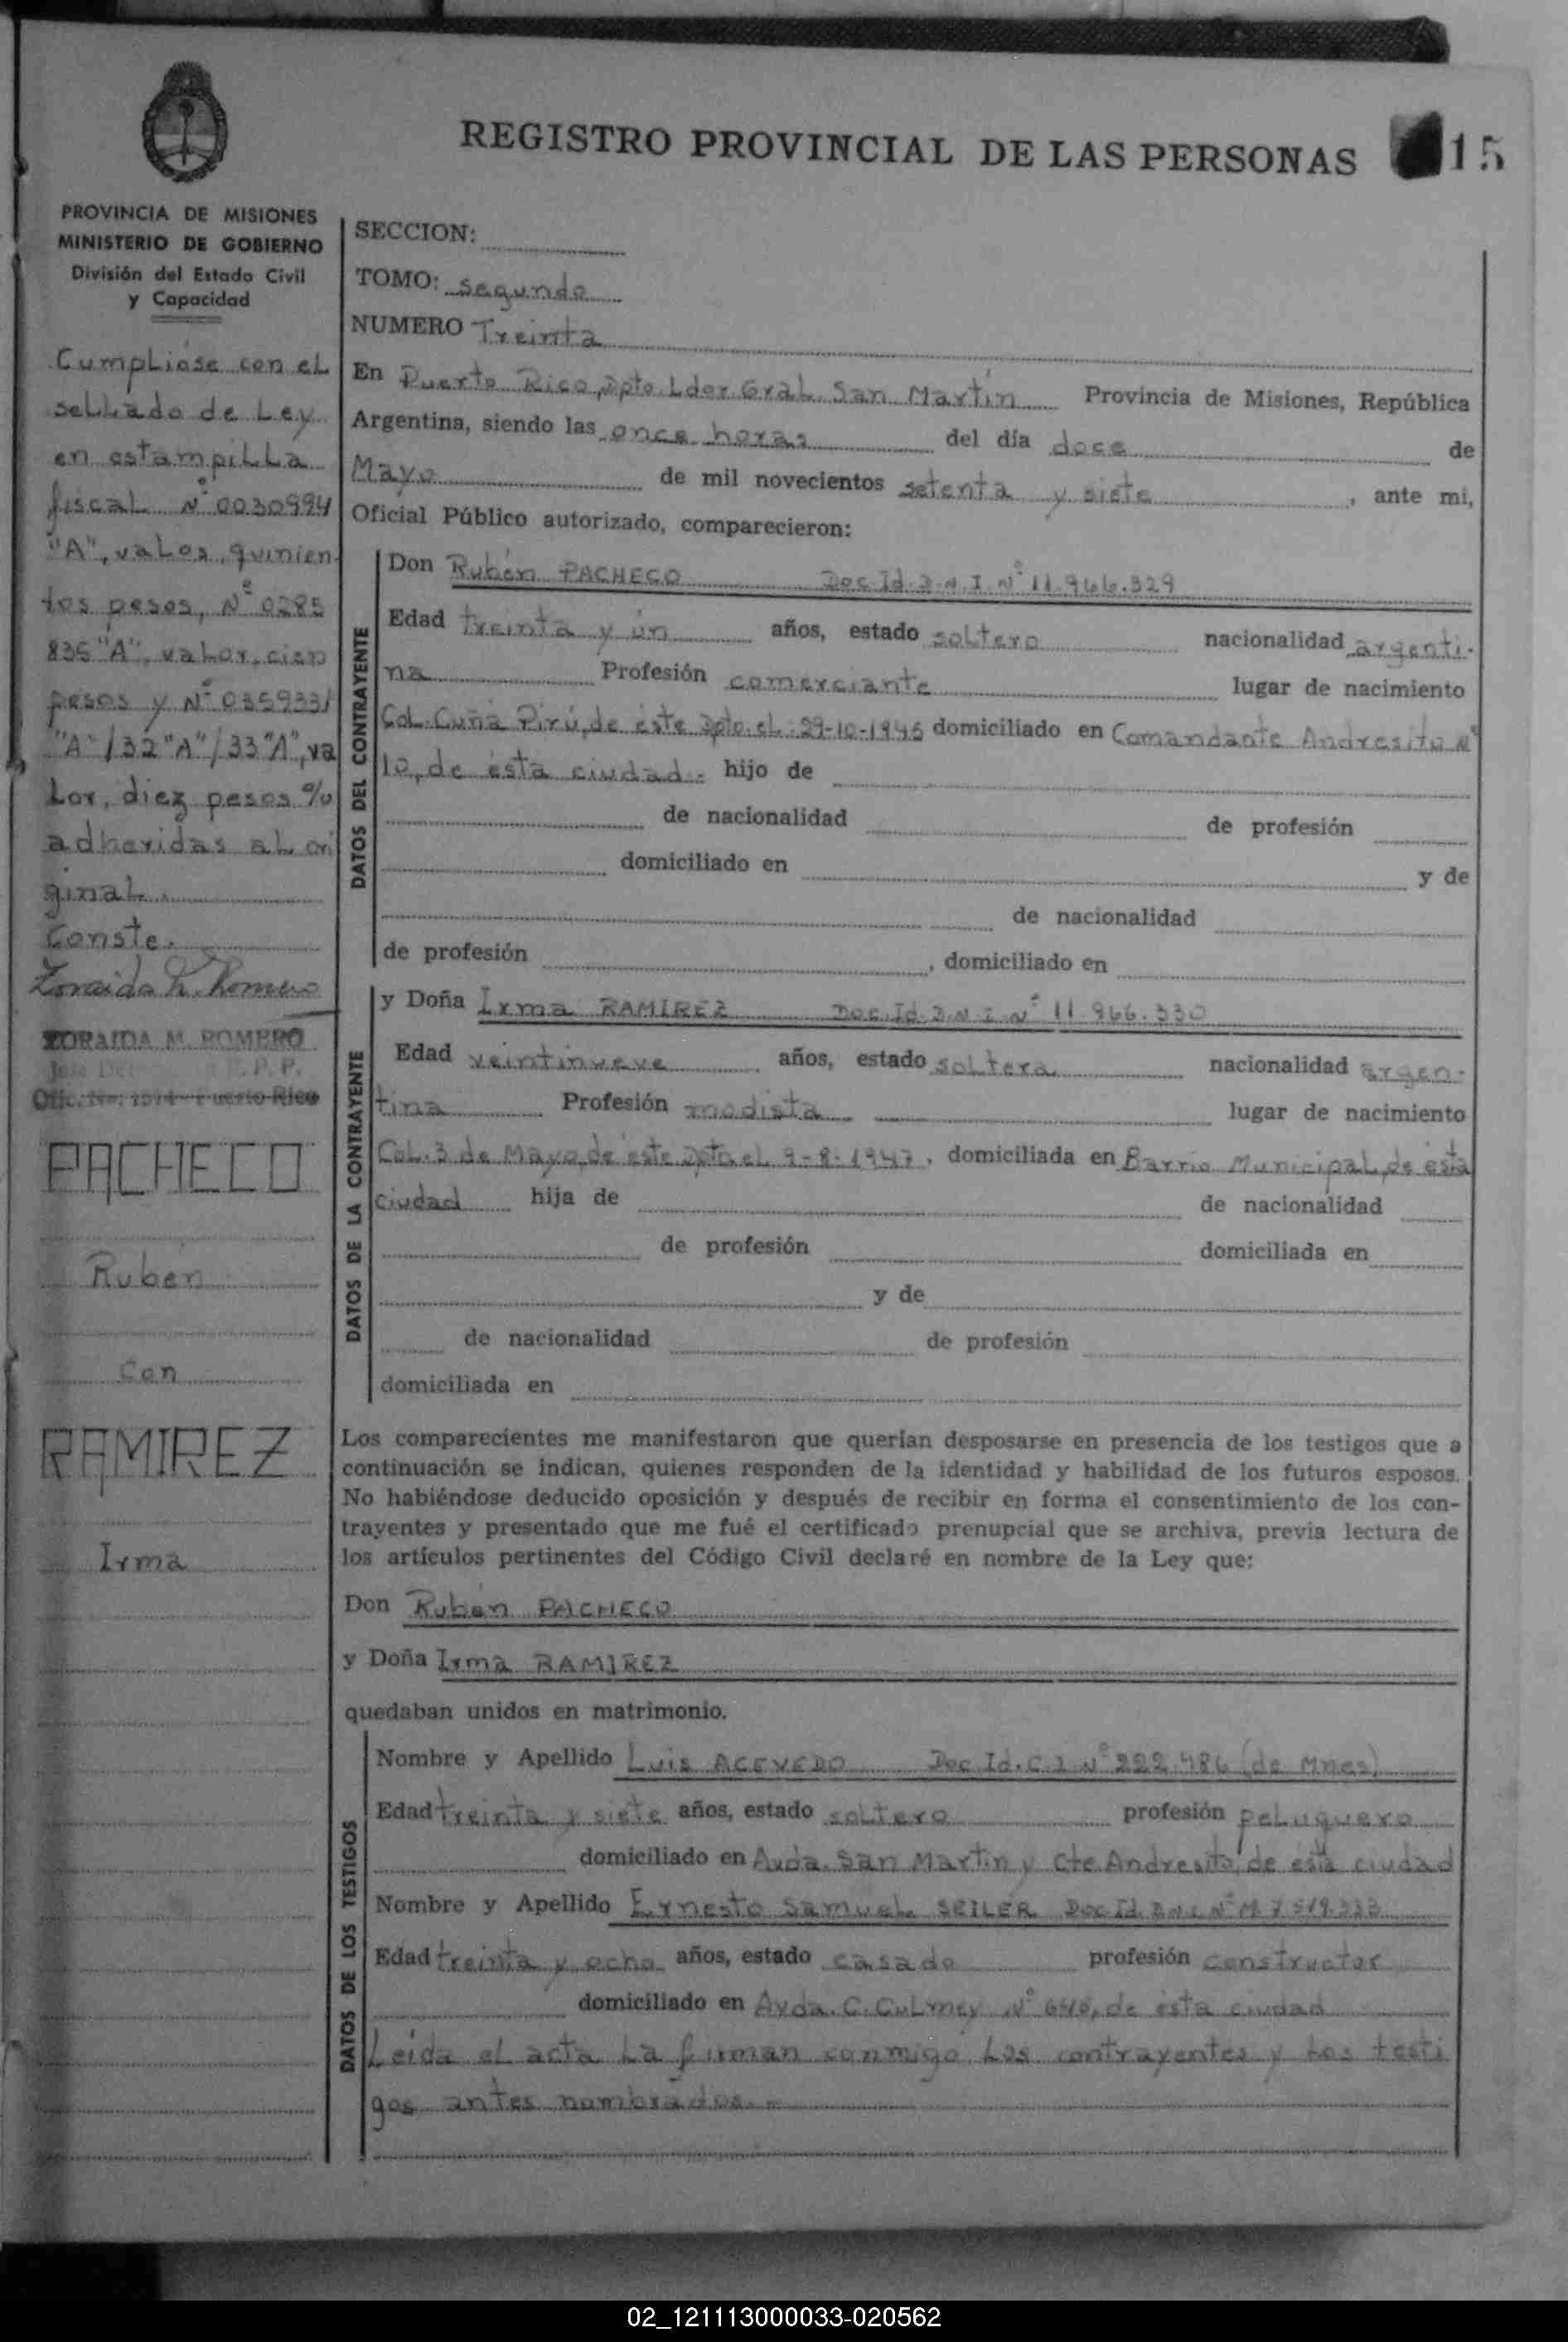 REGISTRO PROVINCIAL DE LAS PERSONAS 15
PROVINCIA DE MISIONES
MINISTERIO DE GOBIERNO
División del Estado Civil
y Capacidad
Cumplióse con el
sellado de Ley
en estampilla
fiscal Nº 0030994
"A", valor, quinien
tos pesos, Nº 0285
835 "A", valor, cien
pesos y Nº 0359331
"A"/32"A"/33"A", va
lor, diez pesos %
adheridas al ori
ginal.
Conste.
Zoraida M. Romero
ZORAIDA M. ROMERO
Ofic. Puerto Rico
PACHECO
Rubén
con
RAMIREZ
Irma
SECCION:
TOMO: segundo
NUMERO Treinta
En Puerto Rico, Dpto. Ldor Gral. San Martín Provincia de Misiones, República
Argentina, siendo las once horas del día doce de
Mayo de mil novecientos setenta y siete, ante mi,
Oficial Público autorizado, comparecieron:
DATOS DEL CONTRAYENTE
Don Rubén PACHECO Doc. Id. D.N.I. Nº 11.966.329
Edad treinta y un años, estado soltero nacionalidad argenti-
na Profesión comerciante lugar de nacimiento
Col. Cuñá Pirú, de éste Dpto. el 29-10-1945 domiciliado en Comandante Andresito Nº
10, de ésta ciudad.- hijo de
de nacionalidad de profesión
domiciliado en y de
de nacionalidad
de profesión , domiciliado en
DATOS DE LA CONTRAYENTE
y Doña Irma RAMIREZ Doc. Id. D.N.I. Nº 11.966.330
Edad veintinueve años, estado soltera nacionalidad argen-
tina Profesión modista lugar de nacimiento
Col. 3 de Mayo, de éste Dpto. el 9-8-1947, domiciliada en Barrio Municipal, de ésta
ciudad hija de de nacionalidad
de profesión domiciliada en
y de
de nacionalidad de profesión
domiciliada en
Los comparecientes me manifestaron que querían desposarse en presencia de los testigos que a
continuación se indican, quienes responden de la identidad y habilidad de los futuros esposos.
No habiéndose deducido oposición y después de recibir en forma el consentimiento de los con-
trayentes y presentado que me fué el certificado prenupcial que se archiva, previa lectura de
los artículos pertinentes del Código Civil declaré en nombre de la Ley que:
Don Rubén PACHECO
y Doña Irma RAMIREZ
quedaban unidos en matrimonio.
DATOS DE LOS TESTIGOS
Nombre y Apellido Luis ACEVEDO Doc. Id. C.I. Nº 222.486 (de Mnes)
Edad treinta y siete años, estado soltero profesión peluquero
domiciliado en Avda. San Martín y Cte. Andresito, de ésta ciudad
Nombre y Apellido Ernesto Samuel SEILER Doc. Id. D.N.I. Nº M. 7.519.333
Edad treinta y ocho años, estado casado profesión constructor
domiciliado en Avda. C. Culmey Nº 646, de ésta ciudad
Leída el acta la firman conmigo los contrayentes y los testi
gos antes nombrados.-
02_121113000033-020562